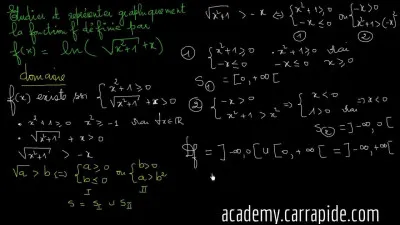 Etudier et représenter graphiquement
la fonction f définie par
f(x) = ln(√(x²+1) + x)
domaine
f(x) existe ssi { x²+1 ≥ 0
√(x²+1) + x > 0
• x²+1 ≥ 0 x² ≥ -1 vrai ∀x∈ℝ
• √(x²+1) + x > 0
√(x²+1) > -x
√a > b ⇔ { a ≥ 0 ou { b ≥ 0
b ≤ 0 a > b²
I II
S = S_I ∪ S_II
√(x²+1) > -x ⇔ { x²+1 ≥ 0 ou { -x > 0
-x ≤ 0 x²+1 > (-x)²
① ②
① { x²+1 ≥ 0 • x²+1 ≥ 0 vrai
-x ≤ 0 -x ≤ 0 x ≥ 0
S₁ = [0, +∞[
② { -x > 0 ⇔ { x < 0 ⇔ x < 0
x²+1 > x² 1 > 0 vrai
S② = ]-∞, 0[
Df = ]-∞, 0[ ∪ [0, +∞[ = ]-∞, +∞[
academy.carrapide.com